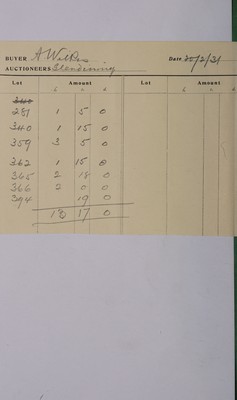 BUYER A Wilkes Date
AUCTIONEERS Glendining
Lot Amount Lot Amount
£ s d £ s d
340
287 1 5 0
340 1 15 0
359 3 5 0
362 1 15 0
365 2 18 0
366 2 0 0
394 19 0
13 17 0